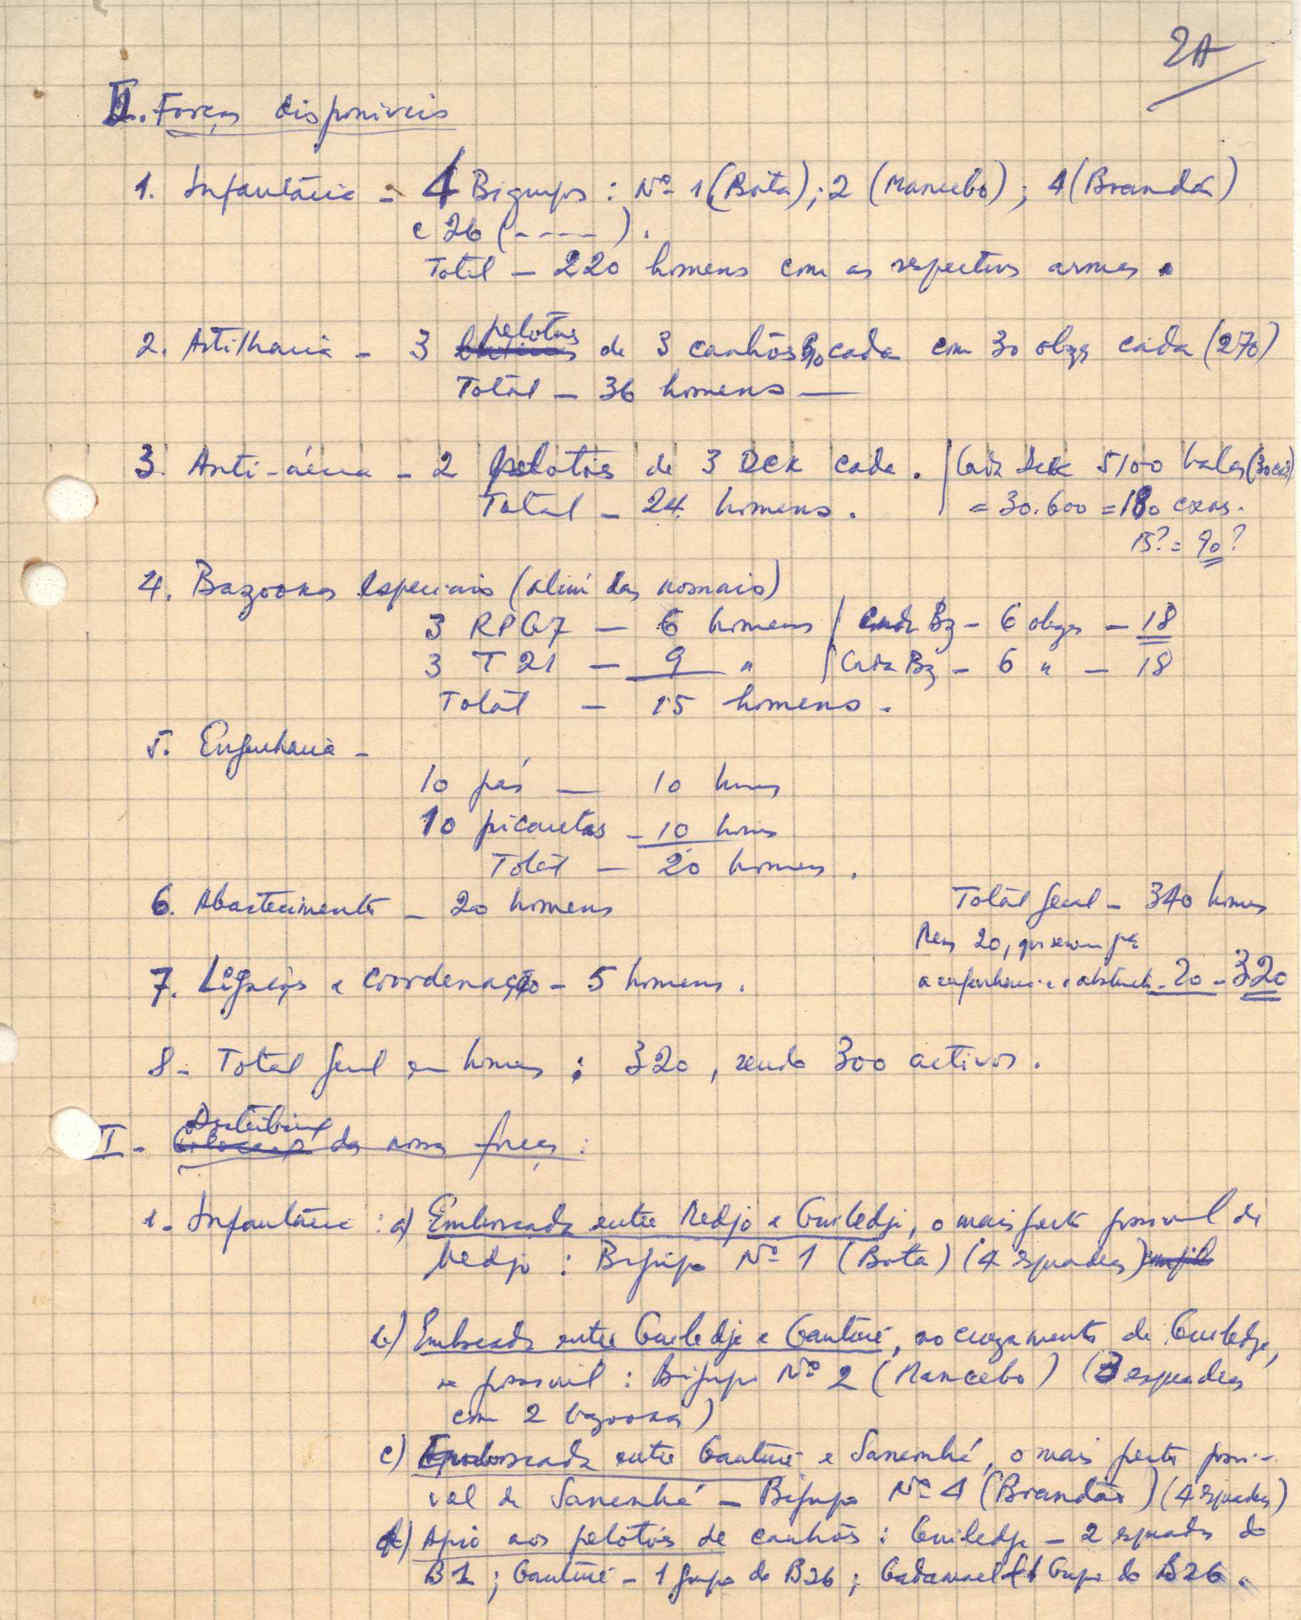 2A
II. Forças disponíveis
1. Infantária - 4 Bigrupos : Nº 1 (Bota) ; 2 (Mancebo) ; 4 (Brandão)
e 26 (----) .
Total - 220 homens com as respectivas armas .
pelotões
2. Artilharia - 3 de 3 canhões cada com 30 obuzes cada (270)
Total - 36 homens —
3. Anti-aérea - 2 pelotões de 3 DCK cada . / Cada DCK 5100 balas (30 cxs)
Total - 24 homens . = 30.600 = 180 caixas.
B? = 90 ?
4. Bazookas especiais (além das normais)
3 RPG7 — 6 homens / Cada Bz - 6 obuzes - 18
3 T 21 — 9 " / Cada Bz - 6 " - 18
Total — 15 homens .
5. Engenharia -
10 pás — 10 homens
10 picaretas - 10 homens
Total — 20 homens .
6. Abastecimento - 20 homens
Total Geral - 340 homens
Menos 20,
a engenharia e o abastecimento - 20 - 320
7. Ligações e coordenação - 5 homens .
8 - Total Geral em homens : 320 , sendo 300 activos .
Distribuição
I - das nossas forças :
1 - Infantária : a) Emboscada entre Medjo e Guiledje, o mais perto possível de
Medjo : Bigrupo Nº 1 (Bota) (4 esquadras)
b) Emboscada entre Guiledje e Ganturé, no cruzamento de Guiledje,
se possível : Bigrupo Nº 2 (Mancebo) (3 esquadras
com 2 bazookas)
c) Emboscada entre Ganturé e Sanconhá, o mais perto possi-
vel de Sanconhá - Bigrupo Nº 4 (Brandão) (4 esquadras)
d) Apoio aos pelotões de canhões : Guiledje - 2 esquadras do
B 1 ; Ganturé - 1 grupo do B26 ; Cadamael 1 Grupo do B26 .